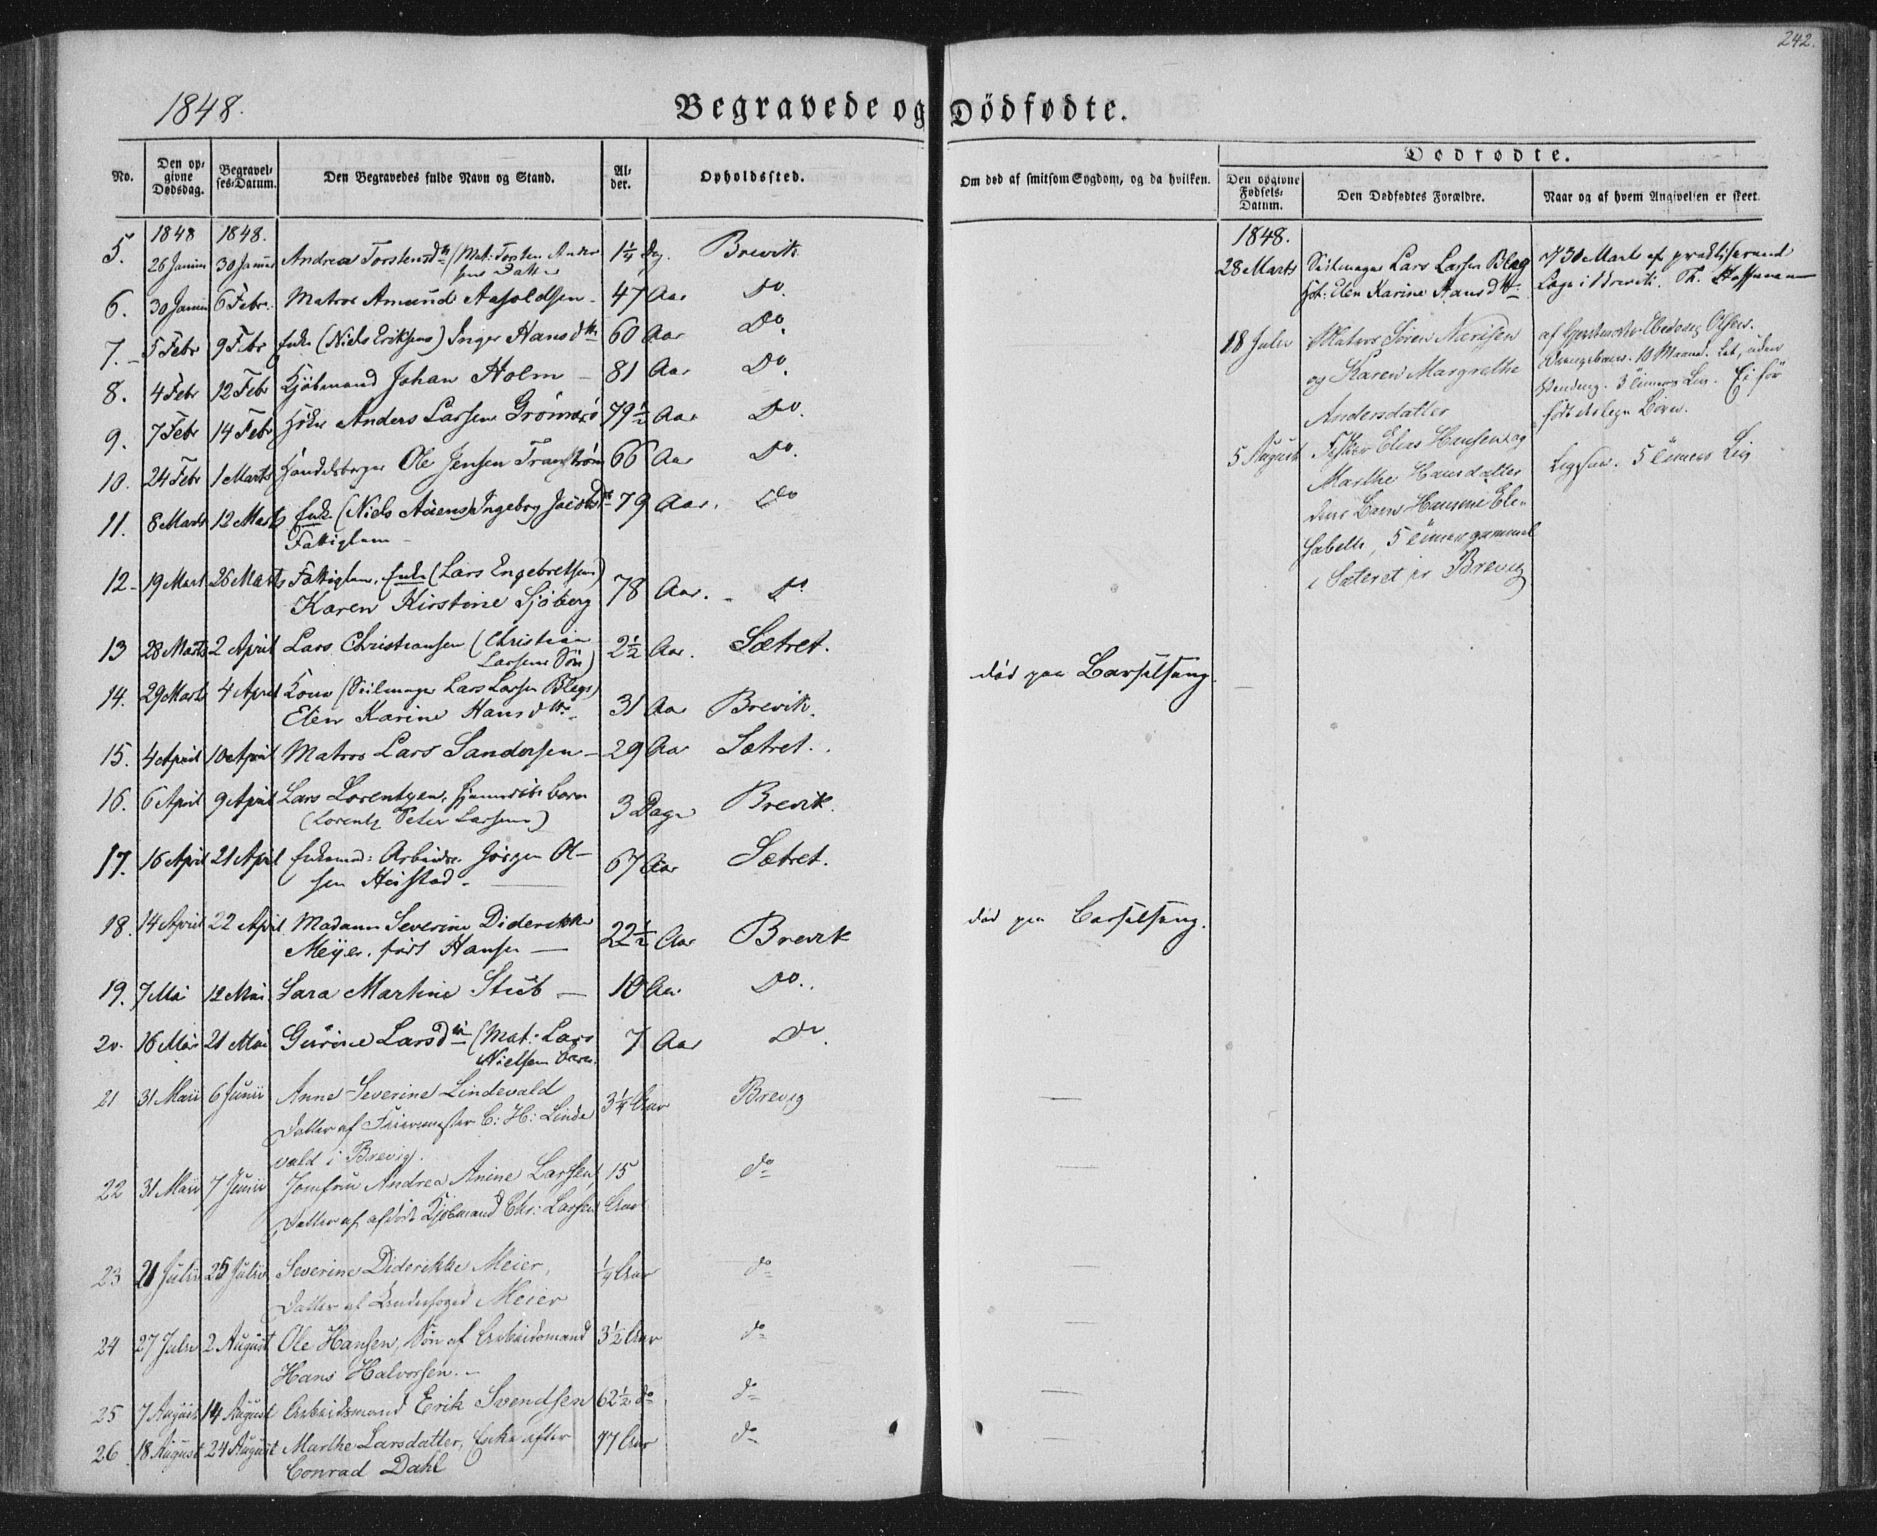 242.
1848.
Begravede og Dödfødte.
No.
Den opgivne Dødsdag.
Begravelses-Datum.
Den Begravedes fulde Navn og Stand.
Alder.
Opholdssted.
Om død af smitsom Sygdom, og da hvilken.
Dødfødte.
Den opgivne Fødsels-Datum.
Den Dødfødtes Forældre.
Naar og af hvem Angivelsen er skeet.
1848 1848.
5. 26 Januar 30 Januar Andrea Torstensdtr (Mat: Torsten Andersens Datter 1¼ Brevik
6. 30 Januar 6 Febr. Matros Amund Aasoldsen 47 Aar Do.
7. 5 Febr 9 Febr Enke (Niels Eriksens) Inger Hansdtr 60 Aar Do.
8. 4 Febr 12 Febr Kjöbmand Johan Holm 81 Aar Do.
9. 7 Febr 14 Febr Anders Larsen 79½ Aar Do.
10. 24 Febr 1 Marts Handelsborger Ole Jensen 66 Aar Do.
11. 8 Marts 12 Marts Enke (Niels Ingeborg 79 Aar. Do
Fattiglem
12 19 Mart 26 Marts Fattiglem, Enke (Lars Engebretsens)
Karen Kirstine Sjöberg 78 Aar. Do
13 28 Marts 2 April Lars Christiansen (Christian
Larsens Sön) 2½ Aar. Sætret.
14. 29 Mart 4 April Kone (Seilmager Lars Larsen Blegs)
Elen Karine Hansdtr. 31 Aar Brevik. död paa Barselseng.
15. 4 April 10 April Matros Lars Sandersen 29 Aar Sætret.
16. 6 April 9 April Lars Lorentzen, hjemmedöbt barn
(Lorentz Peter Larsens) 3 Dage Brevik
17. 16 April 21 April Enkemd: Arbeidsm. Jörgen Ol-
sen Heistad 67 Aar Sætret.
18. 14 April 22 April Madam Severine Diderikke
Meyer, födt Hansen 22½ Aar Brevik död paa Barselseng.
19. 7 Mai 12 Mai Sara Martine Stub 10 Aar Do.
20. 16 Mai 21 Mai Gurine Larsdtr (Mat: Lars
Nielsens barn. 7 Aar Do
21 31 Maii 6 Junii Anne Severine Lindevald
Datter af Feiermester C: H: Linde
vald i Brevig. 3¼ Aar Brevig
22 31 Maii 7 Junii Jomfru Andrea Anine Larssen 15
Datter af afdöd Kjöbmand Chr: Larssen Aar do
23 21 Julii 25 Julii Severine Diderikke Meier,
Datter af Meier ¼ Aar do
24 27 Julii 2 August Ole Hansen, Sön af Arbeidsmand
Hans Halvorsen. 3½ Aar do
25 7 August 14 August Arbeidsmand Erik Svendsen 62½ do do
26 18 August 24 August Marthe Larsdatter, Enke efter
Conrad Dahl 77 Aar do
1848.
28 Marts Seilmager Lars Larsen Bleg
Hst: Elen Karine Hansdtr
30 Mart af practiserende
Læge i Brevik. Th.
18 Julii Matros Sören
og Karen Margrethe
Andersdatter
af Olsen.
5 August Fisker Elias Hansen og
Marthe Hansdatter
deres Barn
5 timer gammel
i Sæteret pr Brevig
5 timers Liv